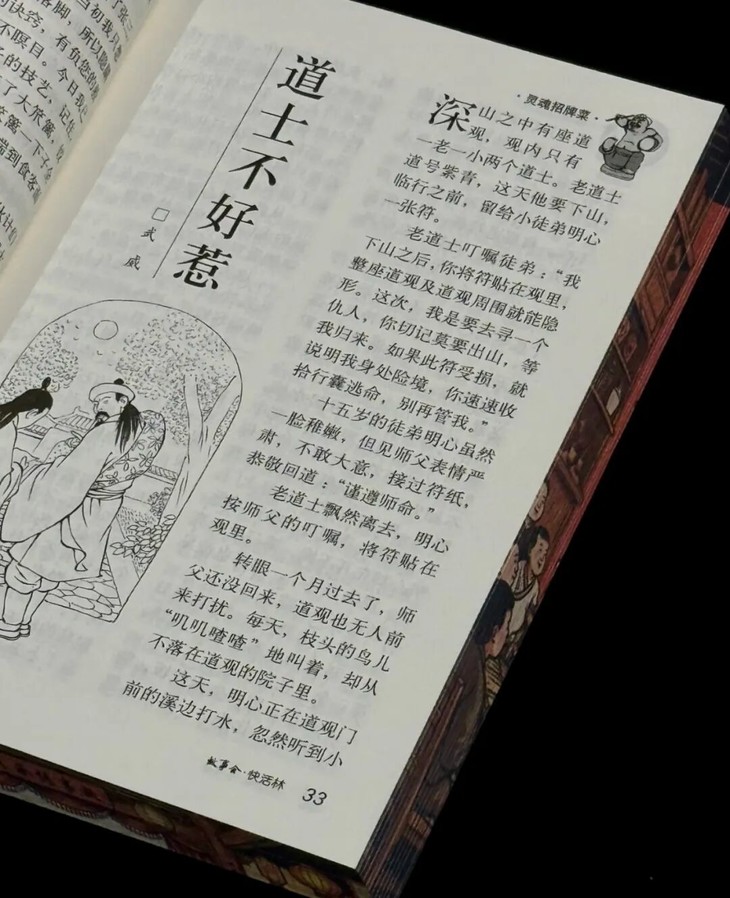 ·灵魂招牌菜·
道士不好惹
□武 威
深山之中有座道
观，观内只有
一老一小两个道士。老道士
道号紫青，这天他要下山，
临行之前，留给小徒弟明心
一张符。
老道士叮嘱徒弟：“我
下山之后，你将符贴在观里，
整座道观及道观周围就能隐
形。这次，我是要去寻一个
仇人，你切记莫要出山，等
我归来。如果此符受损，就
说明我身处险境，你速速收
拾行囊逃命，别再管我。”
十五岁的徒弟明心虽然
一脸稚嫩，但见师父表情严
肃，不敢大意，接过符纸，
恭敬回道：“谨遵师命。”
老道士飘然离去，明心
按师父的叮嘱，将符贴在
观里。
转眼一个月过去了，师
父还没回来，道观也无人前
来打扰。每天，枝头的鸟儿
“叽叽喳喳”地叫着，却从
不落在道观的院子里。
这天，明心正在道观门
前的溪边打水，忽然听到小
故事会·快活林 33
当初我只想
落脚，所以隐瞒
的诀窍，有负您的
不瞑目。今日我
的技艺，记住
了大笊篱，
笊篱一下子
端到食客